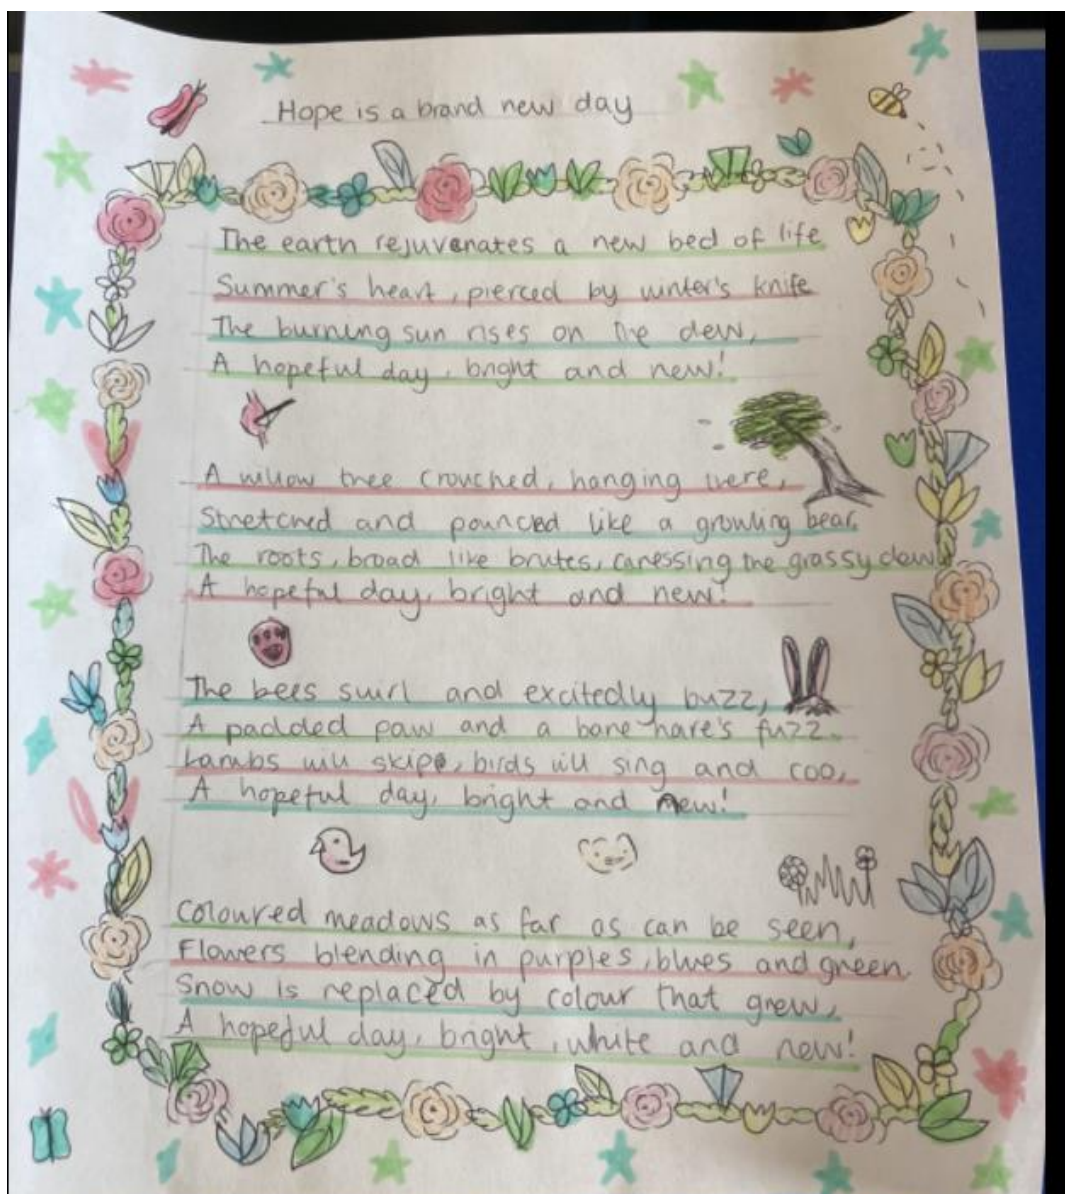 Hope is a brand new day
The earth rejuvenates a new bed of life
Summer's heart, pierced by winter's knife
The burning sun rises on the dew,
A hopeful day, bright and new!
A willow tree crouched, hanging there,
Stretched and pounced like a growling bear,
The roots, broad like brutes, caressing the grassy dew
A hopeful day, bright and new!
The bees swirl and excitedly buzz,
A padded paw and a bare hare's fuzz.
Lambs will skip, birds will sing and coo,
A hopeful day, bright and new!
Coloured meadows as far as can be seen,
Flowers blending in purples, blues and green.
Snow is replaced by colour that grew,
A hopeful day, bright, white and new!